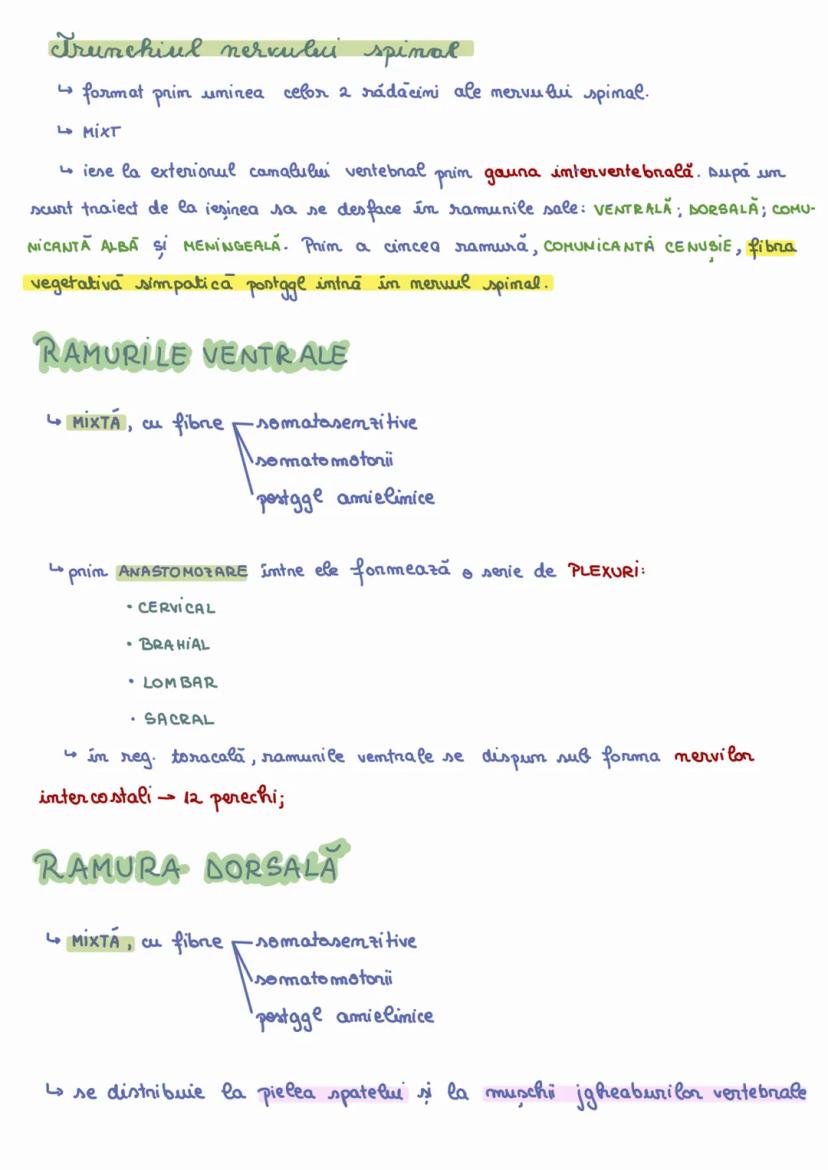 Trunchiul nervului spinal
↳ format prin unirea celor 2 rădăcini ale nervului spinal.
↳ MIXT
↳ iese la exteriorul canalului vertebral prin gaura intervertebrală. După un
scurt traiect de la ieșirea sa se desface în ramurile sale: VENTRALĂ; DORSALĂ; COMU-
NICANTĂ ALBĂ ȘI MENINGEALĂ. Prin a cincea ramură, COMUNICANTĂ CENUȘIE, fibra
vegetativă simpatică postggl intră în nervul spinal.
RAMURILE VENTRALE
↳ MIXTĂ, cu fibre somatosenzitive
somatomotorii
postggl amielinice
↳ prin ANASTOMOZARE între ele formează o serie de PLEXURI:
• CERVICAL
• BRAHIAL
• LOMBAR
• SACRAL
↳ în reg. toracală, ramurile ventrale se dispun sub forma nervilor
intercostali → 12 perechi;
RAMURA DORSALĂ
↳ MIXTĂ, cu fibre somatosenzitive
somatomotorii
postggl amielinice
↳ se distribuie la pielea spatelui și la mușchii jgheaburilor vertebrale